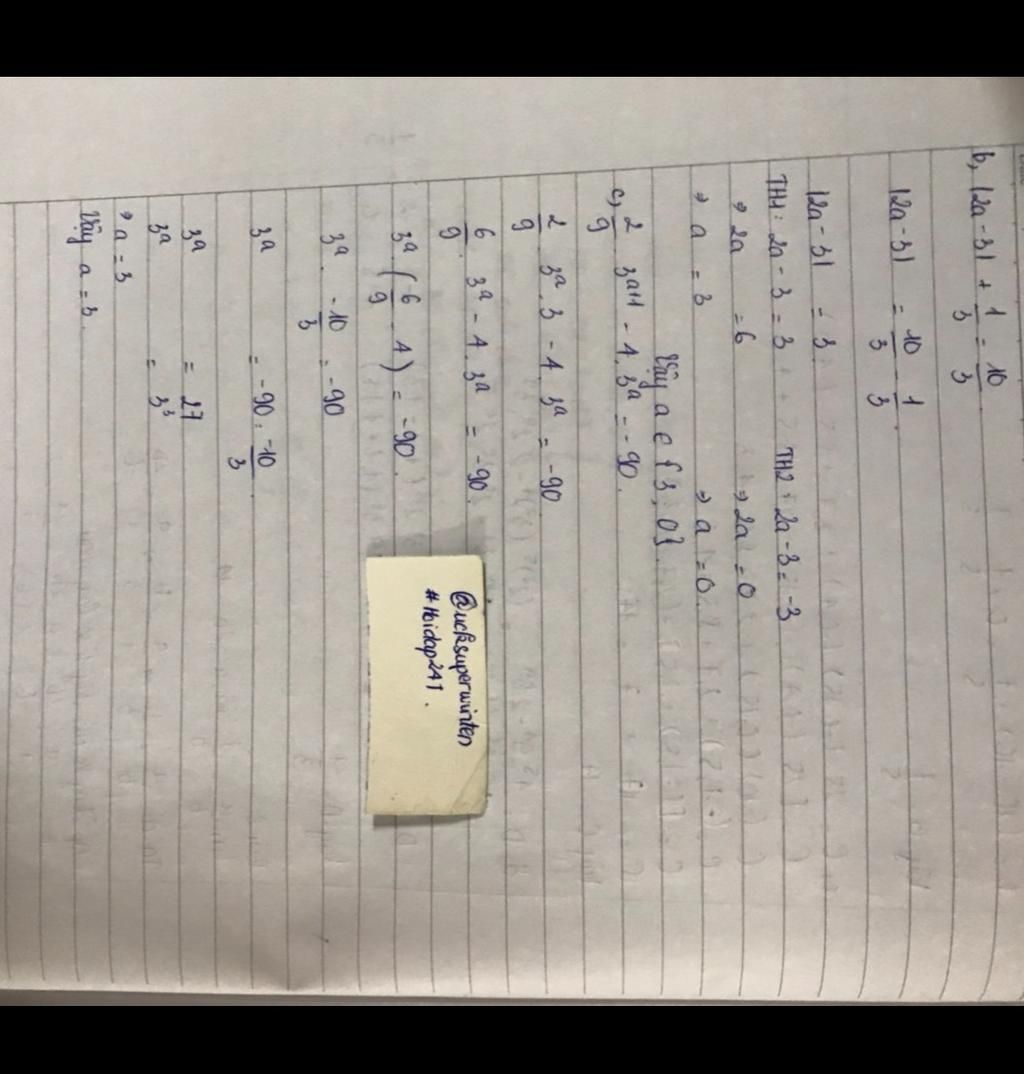 b, |2a - 3| + 1/3 = 10/3
|2a - 3| = 10/3 - 1/3
|2a - 3| = 3
TH1: 2a - 3 = 3 TH2: 2a - 3 = -3
⇒ 2a = 6 ⇒ 2a = 0
⇒ a = 3 ⇒ a = 0
Vậy a ∈ {3; 0}
c, 2/9 . 3^(a+1) - 4. 3^a = -90.
2/9 . 3^a . 3 - 4. 3^a = -90
6/9 . 3^a - 4. 3^a = -90.
3^a (6/9 - 4) = -90.
3^a . -10/3 = -90
3^a = -90 : -10/3
3^a = 27
3^a = 3^3
⇒ a = 3
Vậy a = 3.
@ucksuperwinten
#Hoidap247.